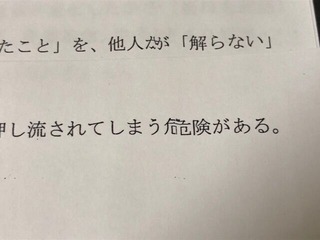 たこと」を、他人が「解らない」
押し流されてしまう危険がある。